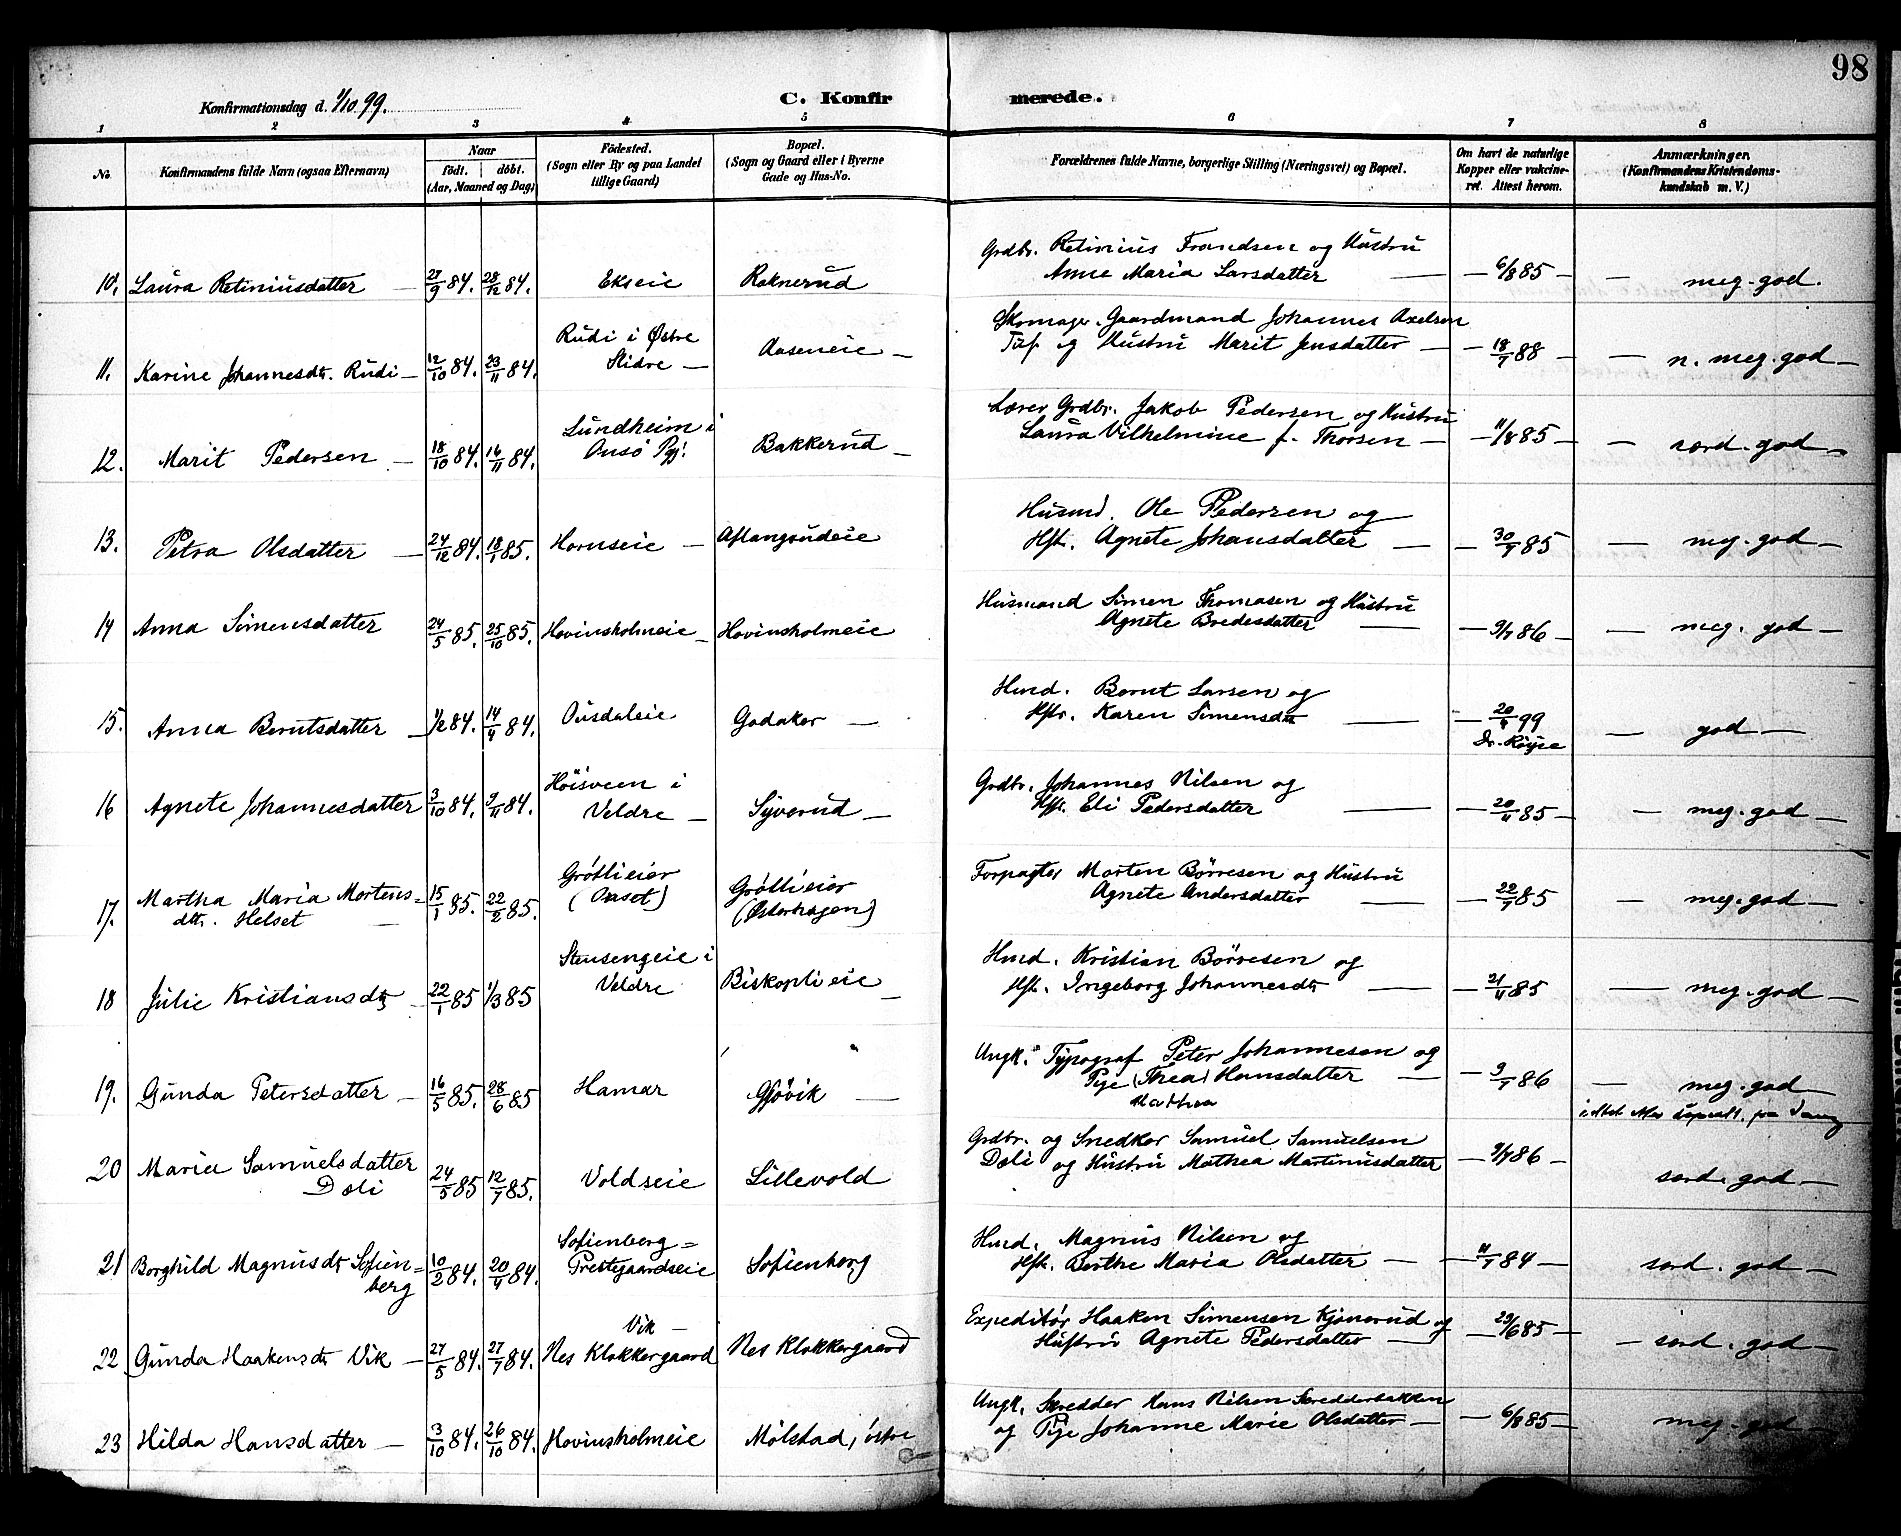 98
Konfirmationsdag d. 1/10 99.
C. Konfirmerede.
1 2 3 4 5 6 7 8
No.
Konfirmandens fulde Navn (ogsaa Efternavn)
Naar
født. døbt.
(Aar, Maaned og Dag)
Födested.
(Sogn eller By og paa Landet
tillige Gaard)
Bopæl.
(Sogn og Gaard eller i Byerne
Gade og Hus-No.
Forældrenes fulde Navne, borgerlige Stilling (Næringsvei) og Bopæl.
Om havt de naturlige
Kopper eller vakcine-
ret. Attest herom.
Anmærkninger.
(Konfirmandens Kristendoms-
kundskab m. V.)
Grdbr. Retinius Frandsen og Hustru
10. Laura Retiniusdatter — 27/9 84. 28/12 84. Ekseie Raknerud Anne Maria Larsdatter — — 6/8 85 — — meg. god.
Rudi i Østre Skomager. Gaardmand Johannes Axelsen
11. Karine Johannesdtr. Rudi — 12/10 84. 23/11 84. Slidre — Aaseneie — og Hustru Marit Jensdatter — — 18/7 88 — n. meg. god —
Lundheim i Lærer Grdbr. Jakob Pedersen og Hustru
12. Marit Pedersen — 18/10 84. 16/11 84. Bakkerud — Laura Vilhelmine f. Thorsen — — 11/8 85 — — særd. god —
Husmd. Ole Pedersen og
13. Petra Olsdatter — 24/12 84. 18/1 85. Hornseie — Aflangrudeie Hstr. Agnete Johansdatter — — 30/7 85 — meg. god —
Husmand Simen Thomasen og Hustru
14 Anna Simensdatter 24/5 85. 25/10 85. Hovinsholmeie — Hovinsholmeie Agnete Bredesdatter — — 9/7 86 — — meg. god —
Hmd. Bernt Larsen og
15. Anna Berntsdatter — 1/2 84. 14/4 84. Ousdaleie Godaker — Hstr. Karen Simensdtr — — 20/9 99 — god —
Høisveen i Grdbr. Johannes Nilsen og
16 Agnete Johannesdatter 3/10 84. 9/11 84. Veldre — Syverud — Hstr. Eli Pedersdatter — — 20/11 85 — — meg. god —
Grøtlieier Grøtlieier Forpagter Morten Børresen og Hustru
17. Martha Maria Mortens= 15/1 85. 22/2 85. (Østerhagen) Agnete Andersdatter — — 22/7 85 — meg. god —
dtr. Helset —
Stensengeie i Hmd. Kristian Børresen og
18 Julie Kristiansdtr — 22/1 85 1/3 85 Veldre Biskoplieie — Hstr. Ingeborg Johannesdtr — — 21/11 85 — meg. god —
Ungk. Typograf Peter Johannesen og
19. Gunda Petersdatter — 16/5 85. 28/6 85 Hamar Gjøvik — Pige (Thea) Hansdatter — — 9/7 86 — meg. god —
Mathea
Grdbr. og Snedker Samuel Samuelsen
20 Maria Samuelsdatter 24/5 85 12/7 85. Voldseie Lillevold Dæli og Hustru Mathea Martinusdatter — 9/7 86 — særd. god —
Dæli
Sofienberg= Hmd. Magnus Nilsen og
21 Borghild Magnusdtr Sofien= 10/2 84. 20/4 84. Prestegaardseie Sofienberg Hstr. Berthe Maria Olsdatter — — 11/7 84 — særd. god —
berg
Vik — Expeditør Haaken Simensen Kjønerud og
22 Gunda Haakensdtr Vik — 27/5 84. 27/7 84. Nes Klokkergaard Nes Klokkergaard Hustru Agnete Pedersdatter — — 29/6 85 — — særd. god —
Ungk. Skredder Hans Nilsen Skredderbakken
23 Hilda Hansdatter — 3/10 84. 26/10 84. Hovinsholmeie Mølstad, østre og Pige Johanne Marie Olsdatter — — 6/8 85 — meg. god —